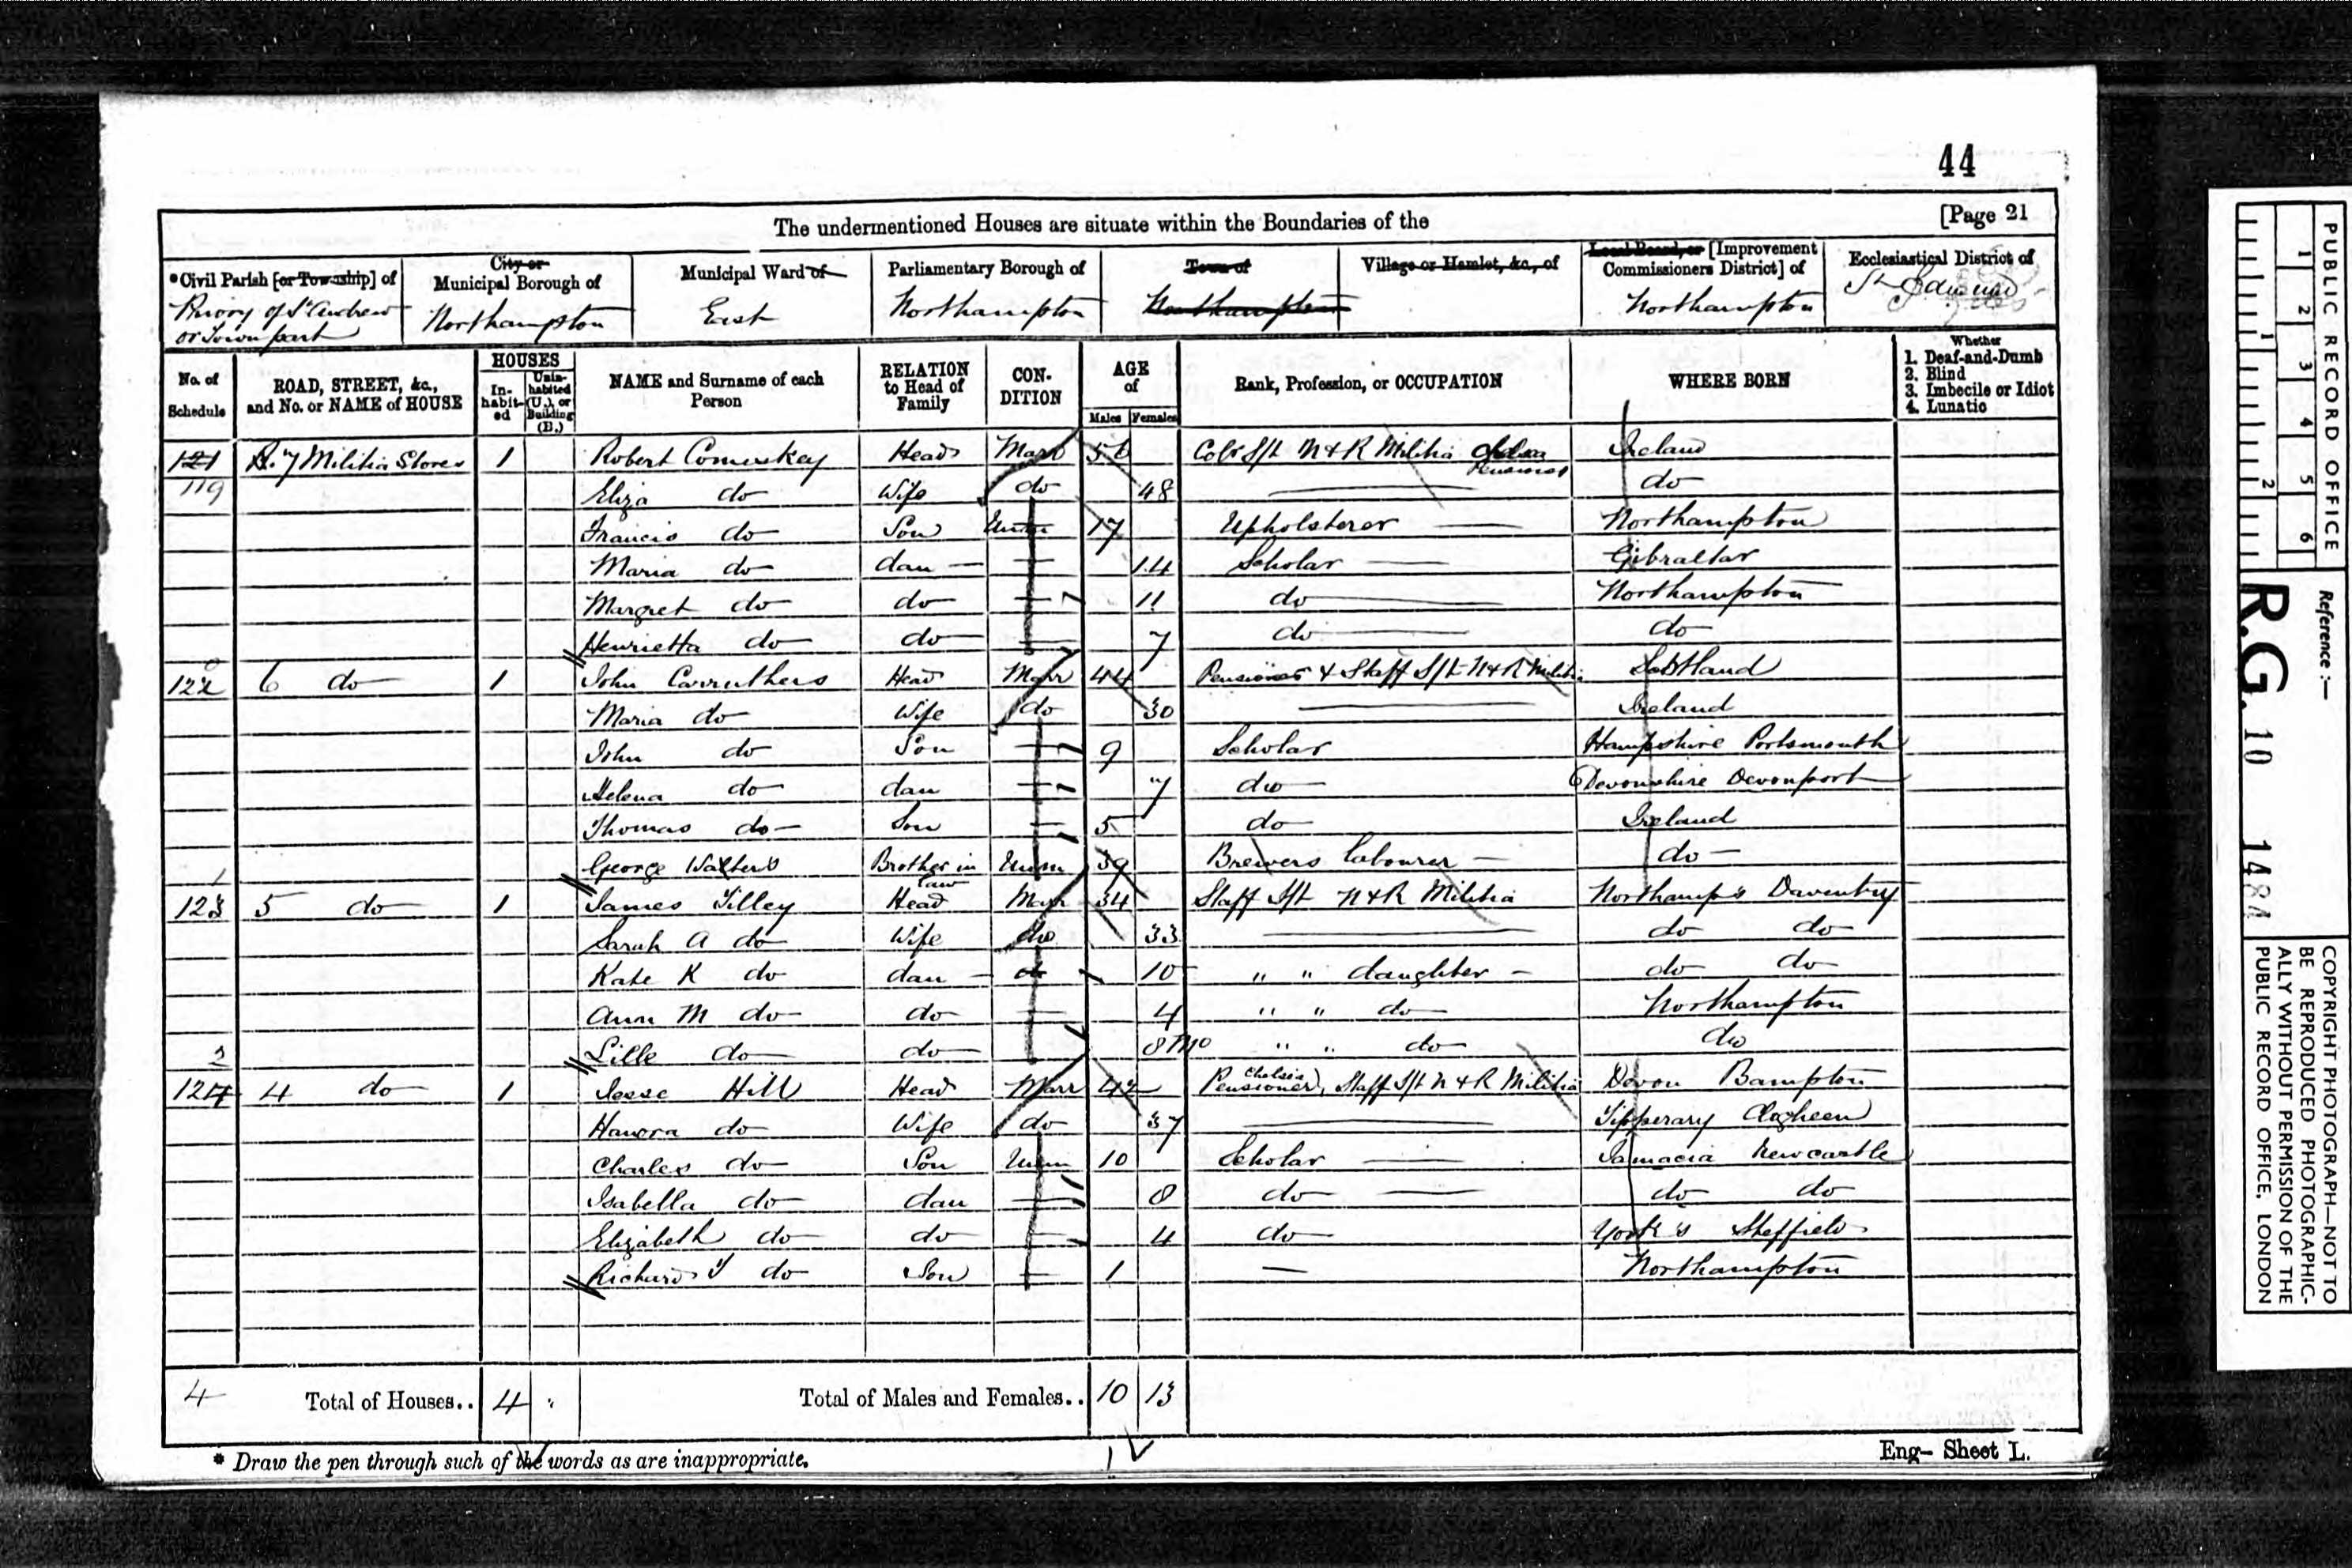 44
The undermentioned Houses are situate within the Boundaries of the [Page 21
*Civil Parish [or Township] of City or Municipal Borough of Municipal Ward of Parliamentary Borough of Town of Village or Hamlet, &c., of Local Board, or [Improvement Commissioners District] of Ecclesiastical District of
Priory of St Andrew or Town part Northampton East Northampton Northampton Northampton St Edmund
No. of Schedule ROAD, STREET, &c., and No. or NAME of HOUSE HOUSES Inhabited Uninhabited (U.), or Building (B.) NAME and Surname of each Person RELATION to Head of Family CONDITION AGE of Males Females Rank, Profession, or OCCUPATION WHERE BORN Whether 1. Deaf-and-Dumb 2. Blind 3. Imbecile or Idiot 4. Lunatic
121 7 Militia Stores 1 Robert Comerskey Head Marr Colr Sjt N & R Militia Chelsea Pensioner Ireland
119 Eliza do Wife do 48 do
Francis do Son Unm 17 Upholsterer Northampton
Maria do dau 14 Scholar Gibraltar
Margret do do 11 do Northampton
Henrietta do do 7 do do
122 6 do 1 John Carruthers Head Marr 44 Pensioner & Staff Sjt N & R Militia Scotland
Maria do Wife do 30 Ireland
John do Son 9 Scholar Hampshire Portsmouth
Helena do dau 7 do Devonshire Devonport
Thomas do Son 5 do Ireland
George Walters Brother in law Unm 39 Brewers labourer do
123 5 do 1 James Tilley Head Marr 34 Staff Sjt N & R Militia Northamp's Daventry
Sarah A do Wife do 33 do do
Kate K do dau do 10 " " daughter do do
Ann M do do 4 " " do Northampton
Lille do do 8 mo " " do do
124 4 do 1 Jesse Hill Head Marr 42 Chelsea Pensioner, Staff Sjt N & R Militia Devon Bampton
Hanora do Wife do 37 Tipperary Clogheen
Charles do Son Unm 10 Scholar Jamacia Newcastle
Isabella do dau 8 do do do
Elizabeth do do 4 do York's Sheffield
Richard do Son 1 Northampton
4 Total of Houses.. 4 Total of Males and Females.. 10 13
* Draw the pen through such of the words as are inappropriate. Eng- Sheet L.
PUBLIC RECORD OFFICE
1 2 3 4 5 6
1 2
Reference :-
R.G. 10 1484
COPYRIGHT PHOTOGRAPH—NOT TO
BE REPRODUCED PHOTOGRAPHIC-
ALLY WITHOUT PERMISSION OF THE
PUBLIC RECORD OFFICE, LONDON